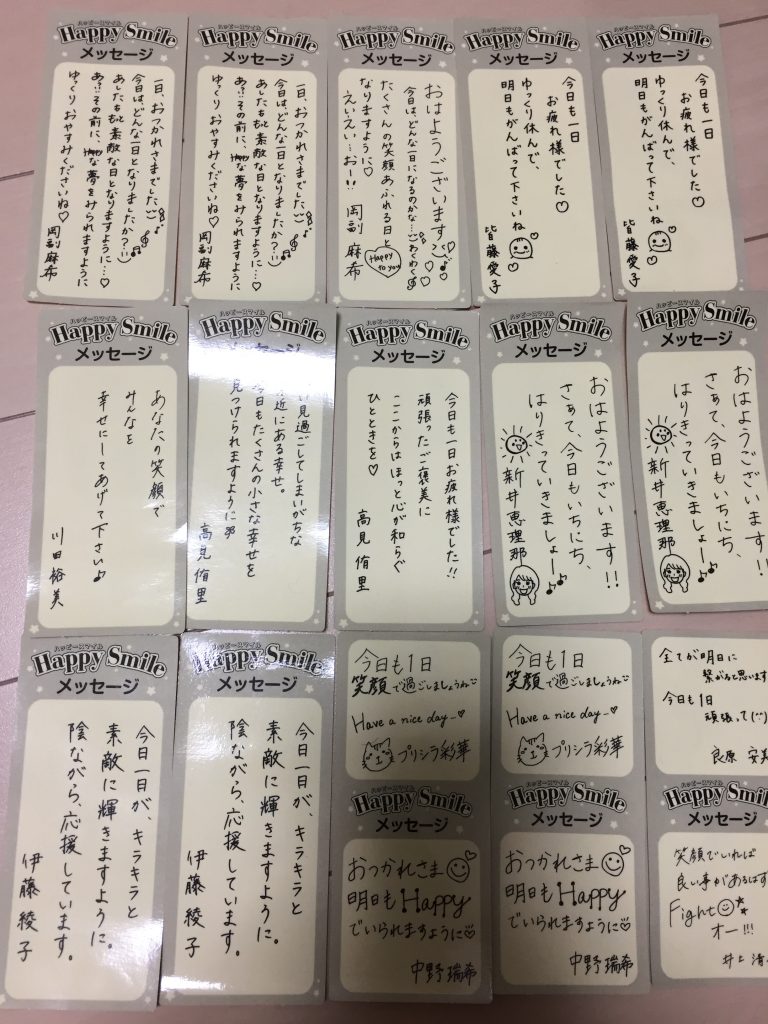 ハッピースマイル
Happy Smile
メッセージ
一日、おつかれさまでした
今日は、どんな一日となりましたか?
あしたも素敵な日となりますように…♡
あ?!その前に、な夢をみられますように
ゆっくりおやすみくださいね♡
岡副麻希
ハッピースマイル
Happy Smile
メッセージ
一日、おつかれさまでした
今日は、どんな一日となりましたか?
あしたも素敵な日となりますように…♡
あ?!その前に、な夢をみられますように
ゆっくりおやすみくださいね♡
岡副麻希
ハッピースマイル
Happy Smile
メッセージ
おはようございます♡
今日は、どんな一日になるのかな…わくわく
たくさんの笑顔あふれる日と
なりますように♡
えいえい…おー!!
Happy to you
岡副 麻希
ハッピースマイル
Happy Smile
メッセージ
今日も一日
お疲れ様でした♡
ゆっくり休んで、
明日もがんばって下さいね
皆藤愛子
ハッピースマイル
Happy Smile
メッセージ
今日も一日
お疲れ様でした♡
ゆっくり休んで、
明日もがんばって下さいね
皆藤愛子
ハッピースマイル
Happy Smile
メッセージ
あなたの笑顔で
みんなを
幸せにしてあげて下さい♪
川田裕美
ハッピースマイル
Happy Smile
メッセージ
見過ごしてしまいがちな
近にある幸せ。
今日もたくさんの小さな幸せを
見つけられますように
高見侑里
ハッピースマイル
Happy Smile
メッセージ
今日も一日お疲れ様でした!!
頑張ったご褒美に
ここからはほっと心が和らぐ
ひとときを♡
高見侑里
ハッピースマイル
Happy Smile
メッセージ
おはようございます!!
さぁて、今日もいちにち、
はりきっていきましょー♪
新井恵理那
ハッピースマイル
Happy Smile
メッセージ
おはようございます!!
さぁて、今日もいちにち、
はりきっていきましょー♪
新井恵理那
ハッピースマイル
Happy Smile
メッセージ
今日一日が、キラキラと
素敵に輝きますように。
陰ながら、応援しています。
伊藤綾子
ハッピースマイル
Happy Smile
メッセージ
今日一日が、キラキラと
素敵に輝きますように。
陰ながら、応援しています。
伊藤綾子
今日も1日
笑顔で過ごしましょうね
Have a nice day_♡
プリシラ彩華
今日も1日
笑顔で過ごしましょうね
Have a nice day_♡
プリシラ彩華
全てが明日に
繋がると思います
今日も1日
頑張って(^^)
良原 安美
ハッピースマイル
Happy Smile
メッセージ
おつかれさま
明日もHappy
でいられますように♡
中野瑞希
ハッピースマイル
Happy Smile
メッセージ
おつかれさま
明日もHappy
でいられますように♡
中野瑞希
Happy Smile
メッセージ
笑顔でいれば
良い事があるはず
Fight
オー!!!
井上清